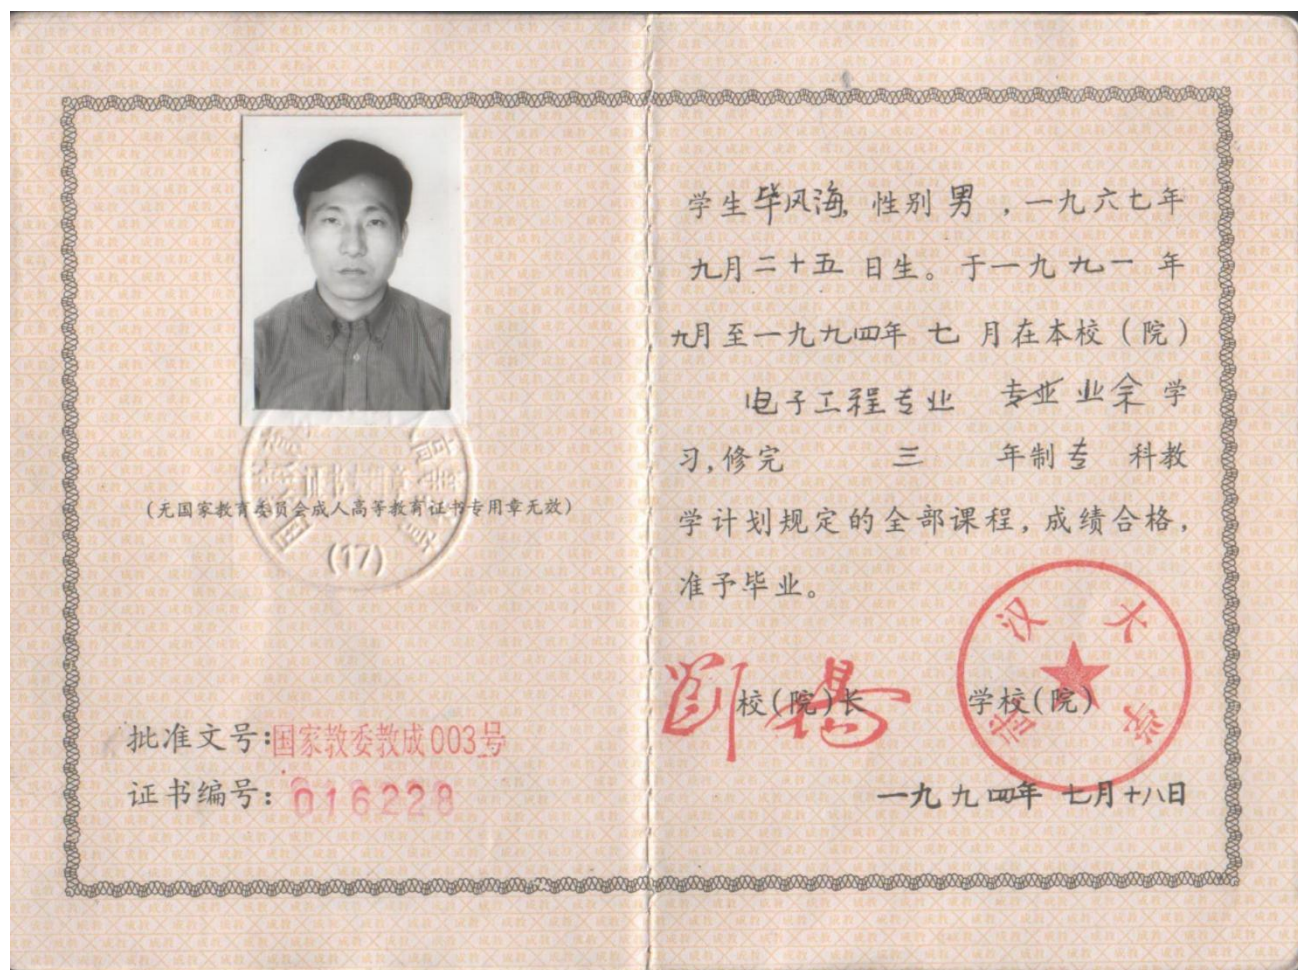 (无国家教育委员会成人高等教育证书专用章无效)
(17)
批准文号:国家教委教成003号
证书编号:016228
学生毕风海,性别男,一九六七年
九月二十五日生。于一九九一年
九月至一九九四年七月在本校(院)
电子工程专业 专业业余学
习,修完 三 年制专科教
学计划规定的全部课程,成绩合格,
准予毕业。
校(院)长 学校(院)
武汉大学
一九九四年七月十八日